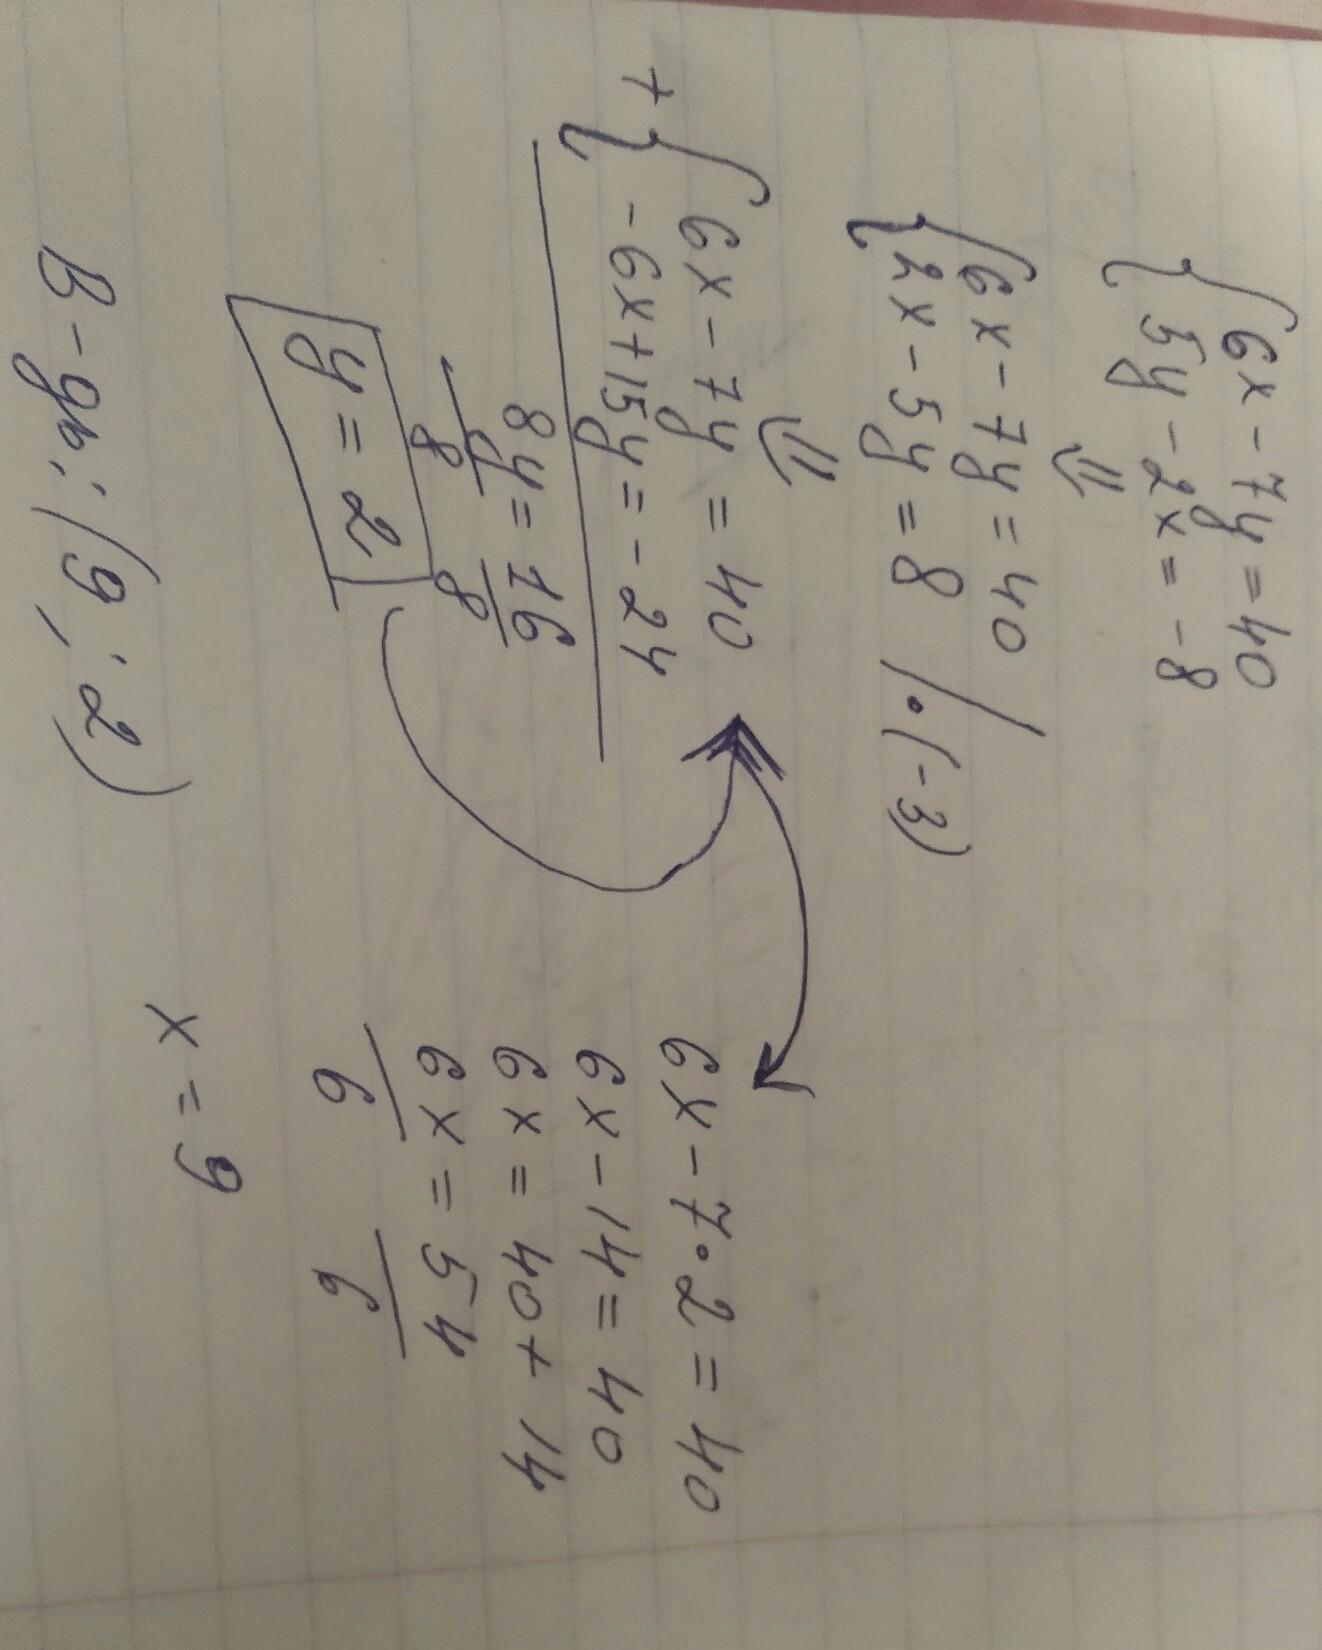 {6x - 7y = 40
5y - 2x = -8
⇓
{6x - 7y = 40
2x - 5y = 8 / · (-3)
⇓
+ {6x - 7y = 40
-6x + 15y = -24
8y = 16
8 8
y = 2
6x - 7·2 = 40
6x - 14 = 40
6x = 40 + 14
6x = 54
6 6
x = 9
В-дь: (9 ; 2)